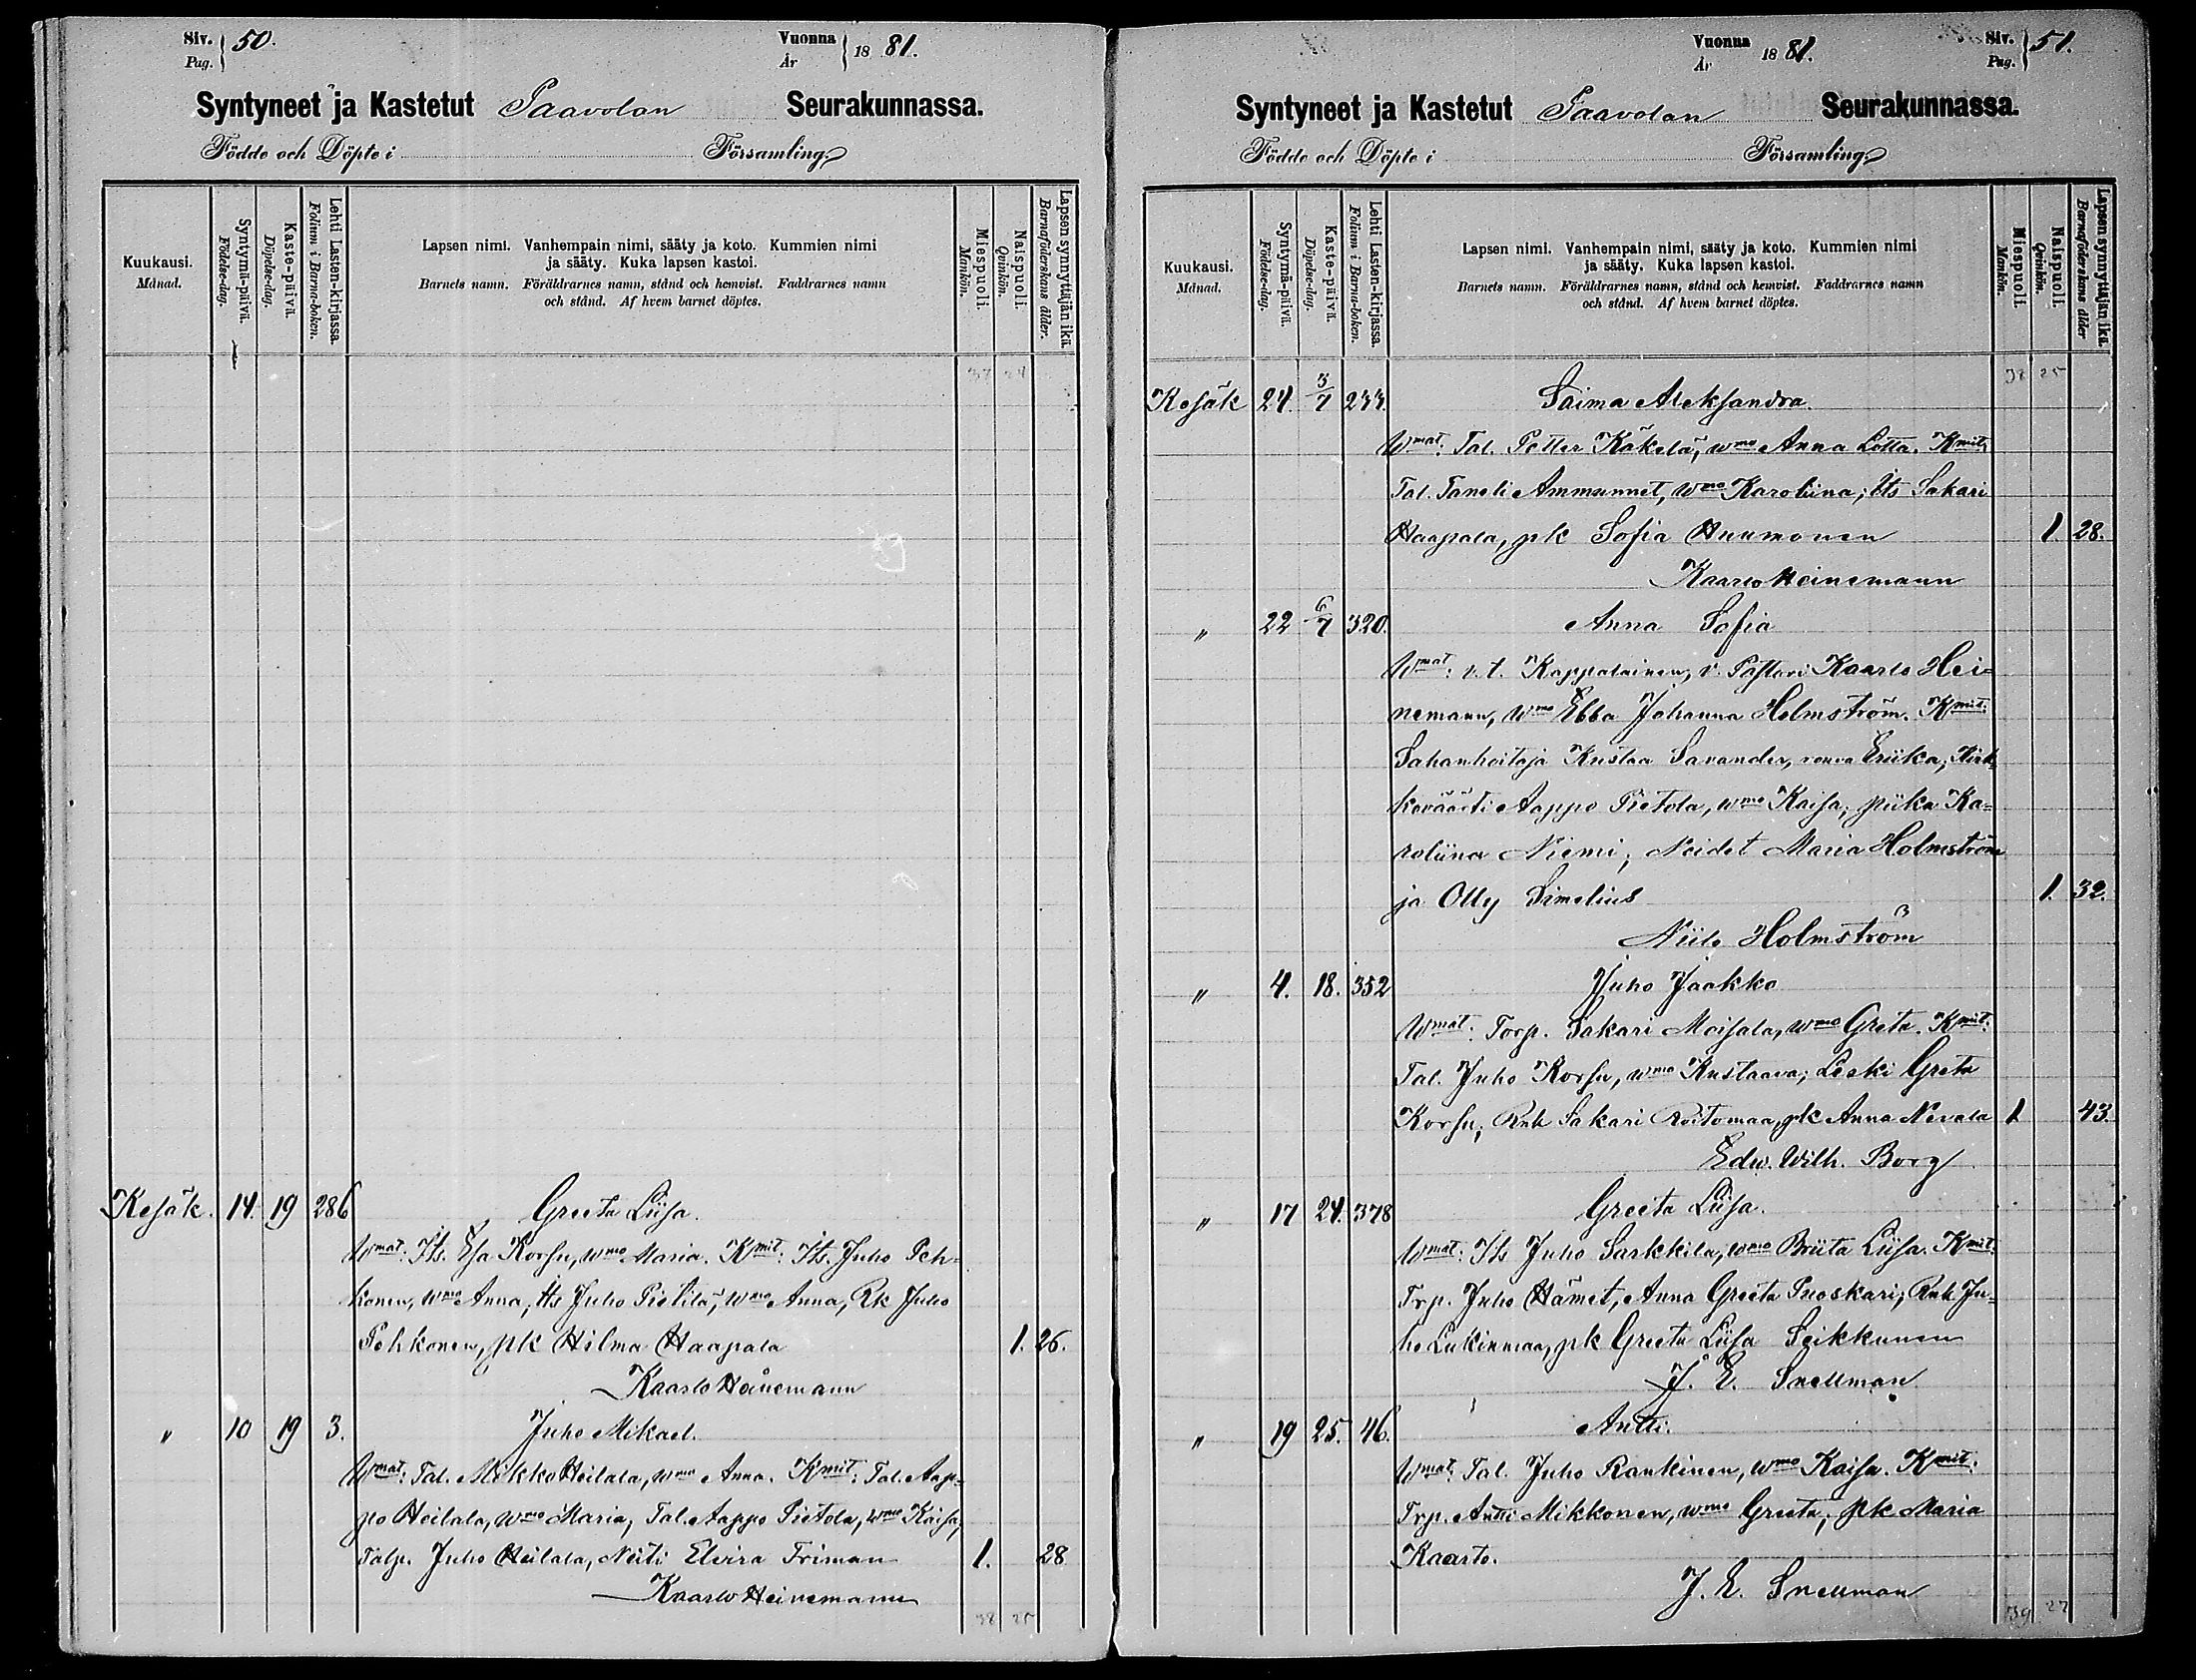 Siv. 50.
Pag.
Vuonna 1881.
År
Syntyneet ja Kastetut Paavolan Seurakunnassa.
Födde och Döpte i Församling.
Kuukausi.
Månad.
Syntymä-päivä.
Födelse-dag.
Kaste-päivä.
Döpelse-dag.
Lehti Lasten-kirjassa.
Folium i Barna-boken.
Lapsen nimi. Vanhempain nimi, sääty ja koto. Kummien nimi
ja sääty. Kuka lapsen kastoi.
Barnets namn. Föräldrarnes namn, stånd och hemvist. Faddrarnes namn
och stånd. Af hvem barnet döptes.
Miespuoli.
Mankön.
Naispuoli.
Qvinkön.
Lapsen synnyttäjän ikä.
Barnaföderskans ålder.
37 24
Kesäk. 14. 19 286 Greeta Liisa.
Wmat: Its. Esa Korsu, wmo Maria. Kmit: Its. Juho Peh-
konen, wmo Anna; Its Juho Pietilä, wmo Anna, Rk Juho
Pehkonen, pk Hilma Haapala 1. 26.
Kaarlo Heinemann
" 10 19 3. Juho Mikael.
Wmat: Tal. Mikko Heilala, wmo Anna. Kmit: Tal. Aap-
po Heilala, wmo Maria, Tal. Aappo Pietola, wmo Kaisa,
Talp. Juho Heilala, Neiti Elvira Friman 1. 28
Kaarlo Heinemann
38 25
Vuonna 1881.
År
Siv. 51.
Pag.
Syntyneet ja Kastetut Paavolan Seurakunnassa.
Födde och Döpte i Församling.
Kuukausi.
Månad.
Syntymä-päivä.
Födelse-dag.
Kaste-päivä.
Döpelse-dag.
Lehti Lasten-kirjassa.
Folium i Barna-boken.
Lapsen nimi. Vanhempain nimi, sääty ja koto. Kummien nimi
ja sääty. Kuka lapsen kastoi.
Barnets namn. Föräldrarnes namn, stånd och hemvist. Faddrarnes namn
och stånd. Af hvem barnet döptes.
Miespuoli.
Mankön.
Naispuoli.
Qvinkön.
Lapsen synnyttäjän ikä.
Barnaföderskans ålder
38 25
Kesäk 24. 3/7 233. Saima Aleksandra.
Wmat: Tal. Petter Käkelä, wmo Anna Lotta. Kmit:
Tal. Taneli Ammunnet, wmo Karoliina; Its Sakari
Haapala, pk Sofia Huumonen 1. 28.
Kaarlo Heinemann
" 22 6/7 320. Anna Sofia
Wmat: v.t. Kappalainen, v. Pastori Kaarlo Hei-
nemann, wmo Ebba Johanna Holmström. Kmit:
Sahanhoitaja Kustaa Savander, rouva Eriika; Kirk-
koväärti Aappo Pietola, wmo Kaisa; piika Ka-
roliina Niemi; Neidet Maria Holmström
ja Olly Simelius 1. 32.
Niilo Holmström
" 4. 18. 352 Juho Jaakko
Wmat: Torp. Sakari Moisala, wmo Greta. Kmit:
Tal. Juho Korsu, wmo Kustaava; Leski Greta
Korsu; Rnk Sakari Roitomaa, pk Anna Nevala 1 43.
Edw. Wilh. Borg
" 17 24. 378 Greeta Liisa.
Wmat: Its Juho Sarkkila, wmo Briita Liisa. Kmit:
Trp. Juho Hämet, Anna Greeta Suoskari; Rnk Ju-
ho Lukinmaa, pk Greeta Liisa Seikkunen
J. E. Snellman
" 19 25. 46. Antti.
Wmat: Tal. Juho Rankinen, wmo Kaisa. Kmit:
Trp. Antti Mikkonen, wmo Greeta; pk Maria
Kaarto.
J. E. Snellman
39 27